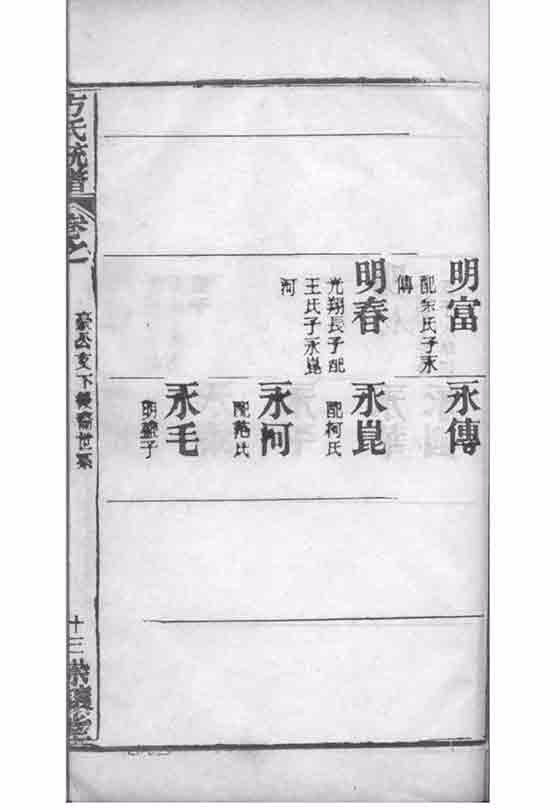 明富
配余氏子永
傳
明春
光翔長子配
王氏子永崑
河
永傳
永崑
配柯氏
永河
配范氏
永毛
方氏統譜
卷之
豪公支下後裔世系
十三